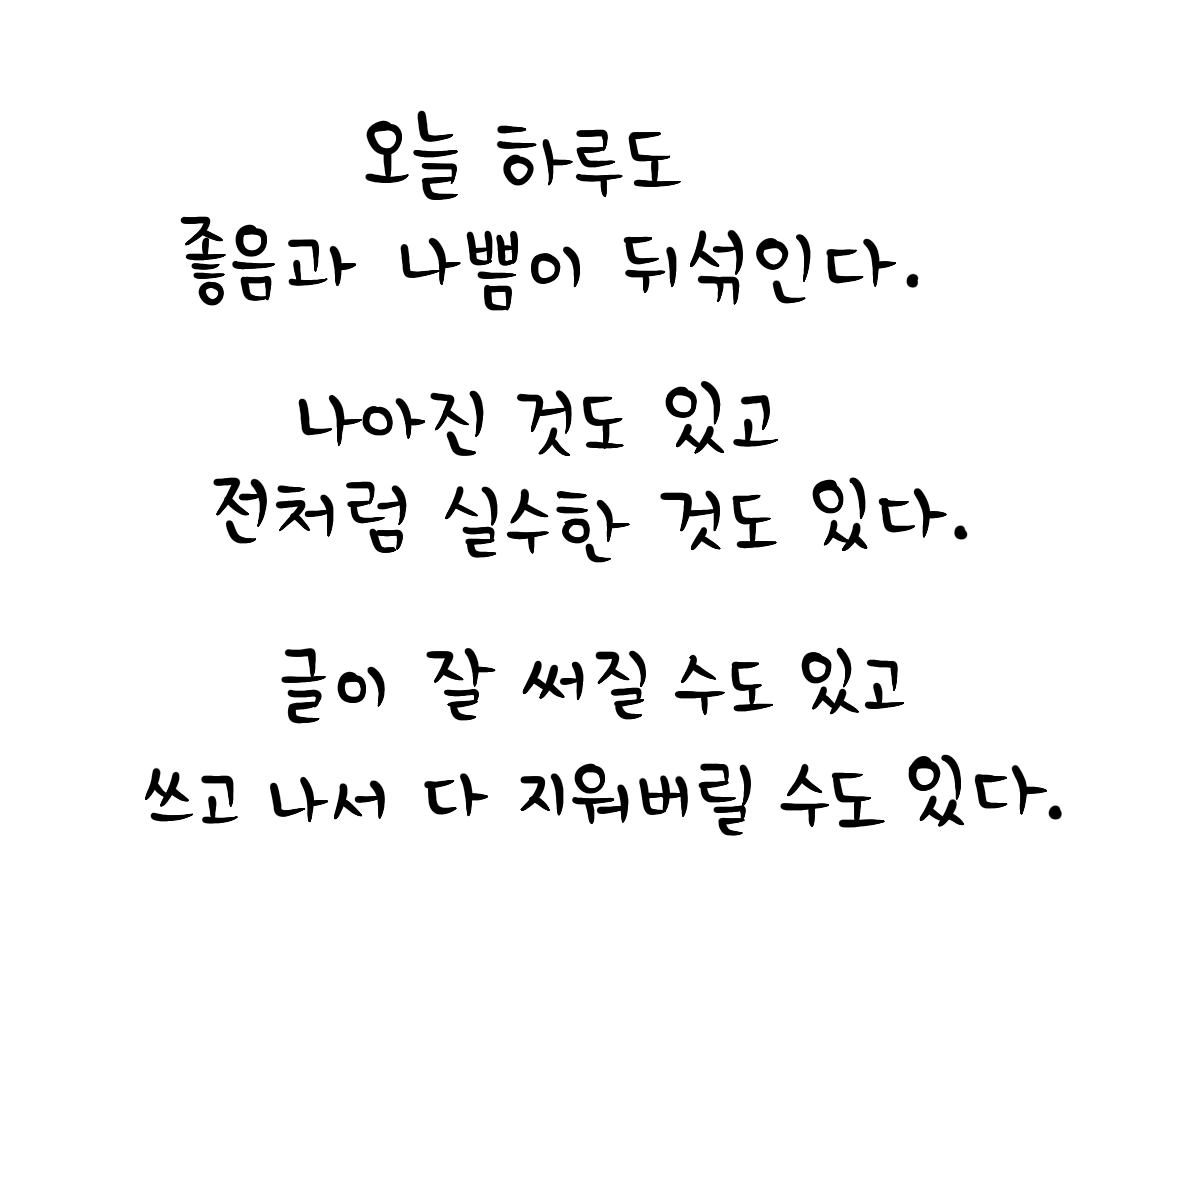 오늘 하루도
좋음과 나쁨이 뒤섞인다.
나아진 것도 있고
전처럼 실수한 것도 있다.
글이 잘 써질 수도 있고
쓰고 나서 다 지워버릴 수도 있다.